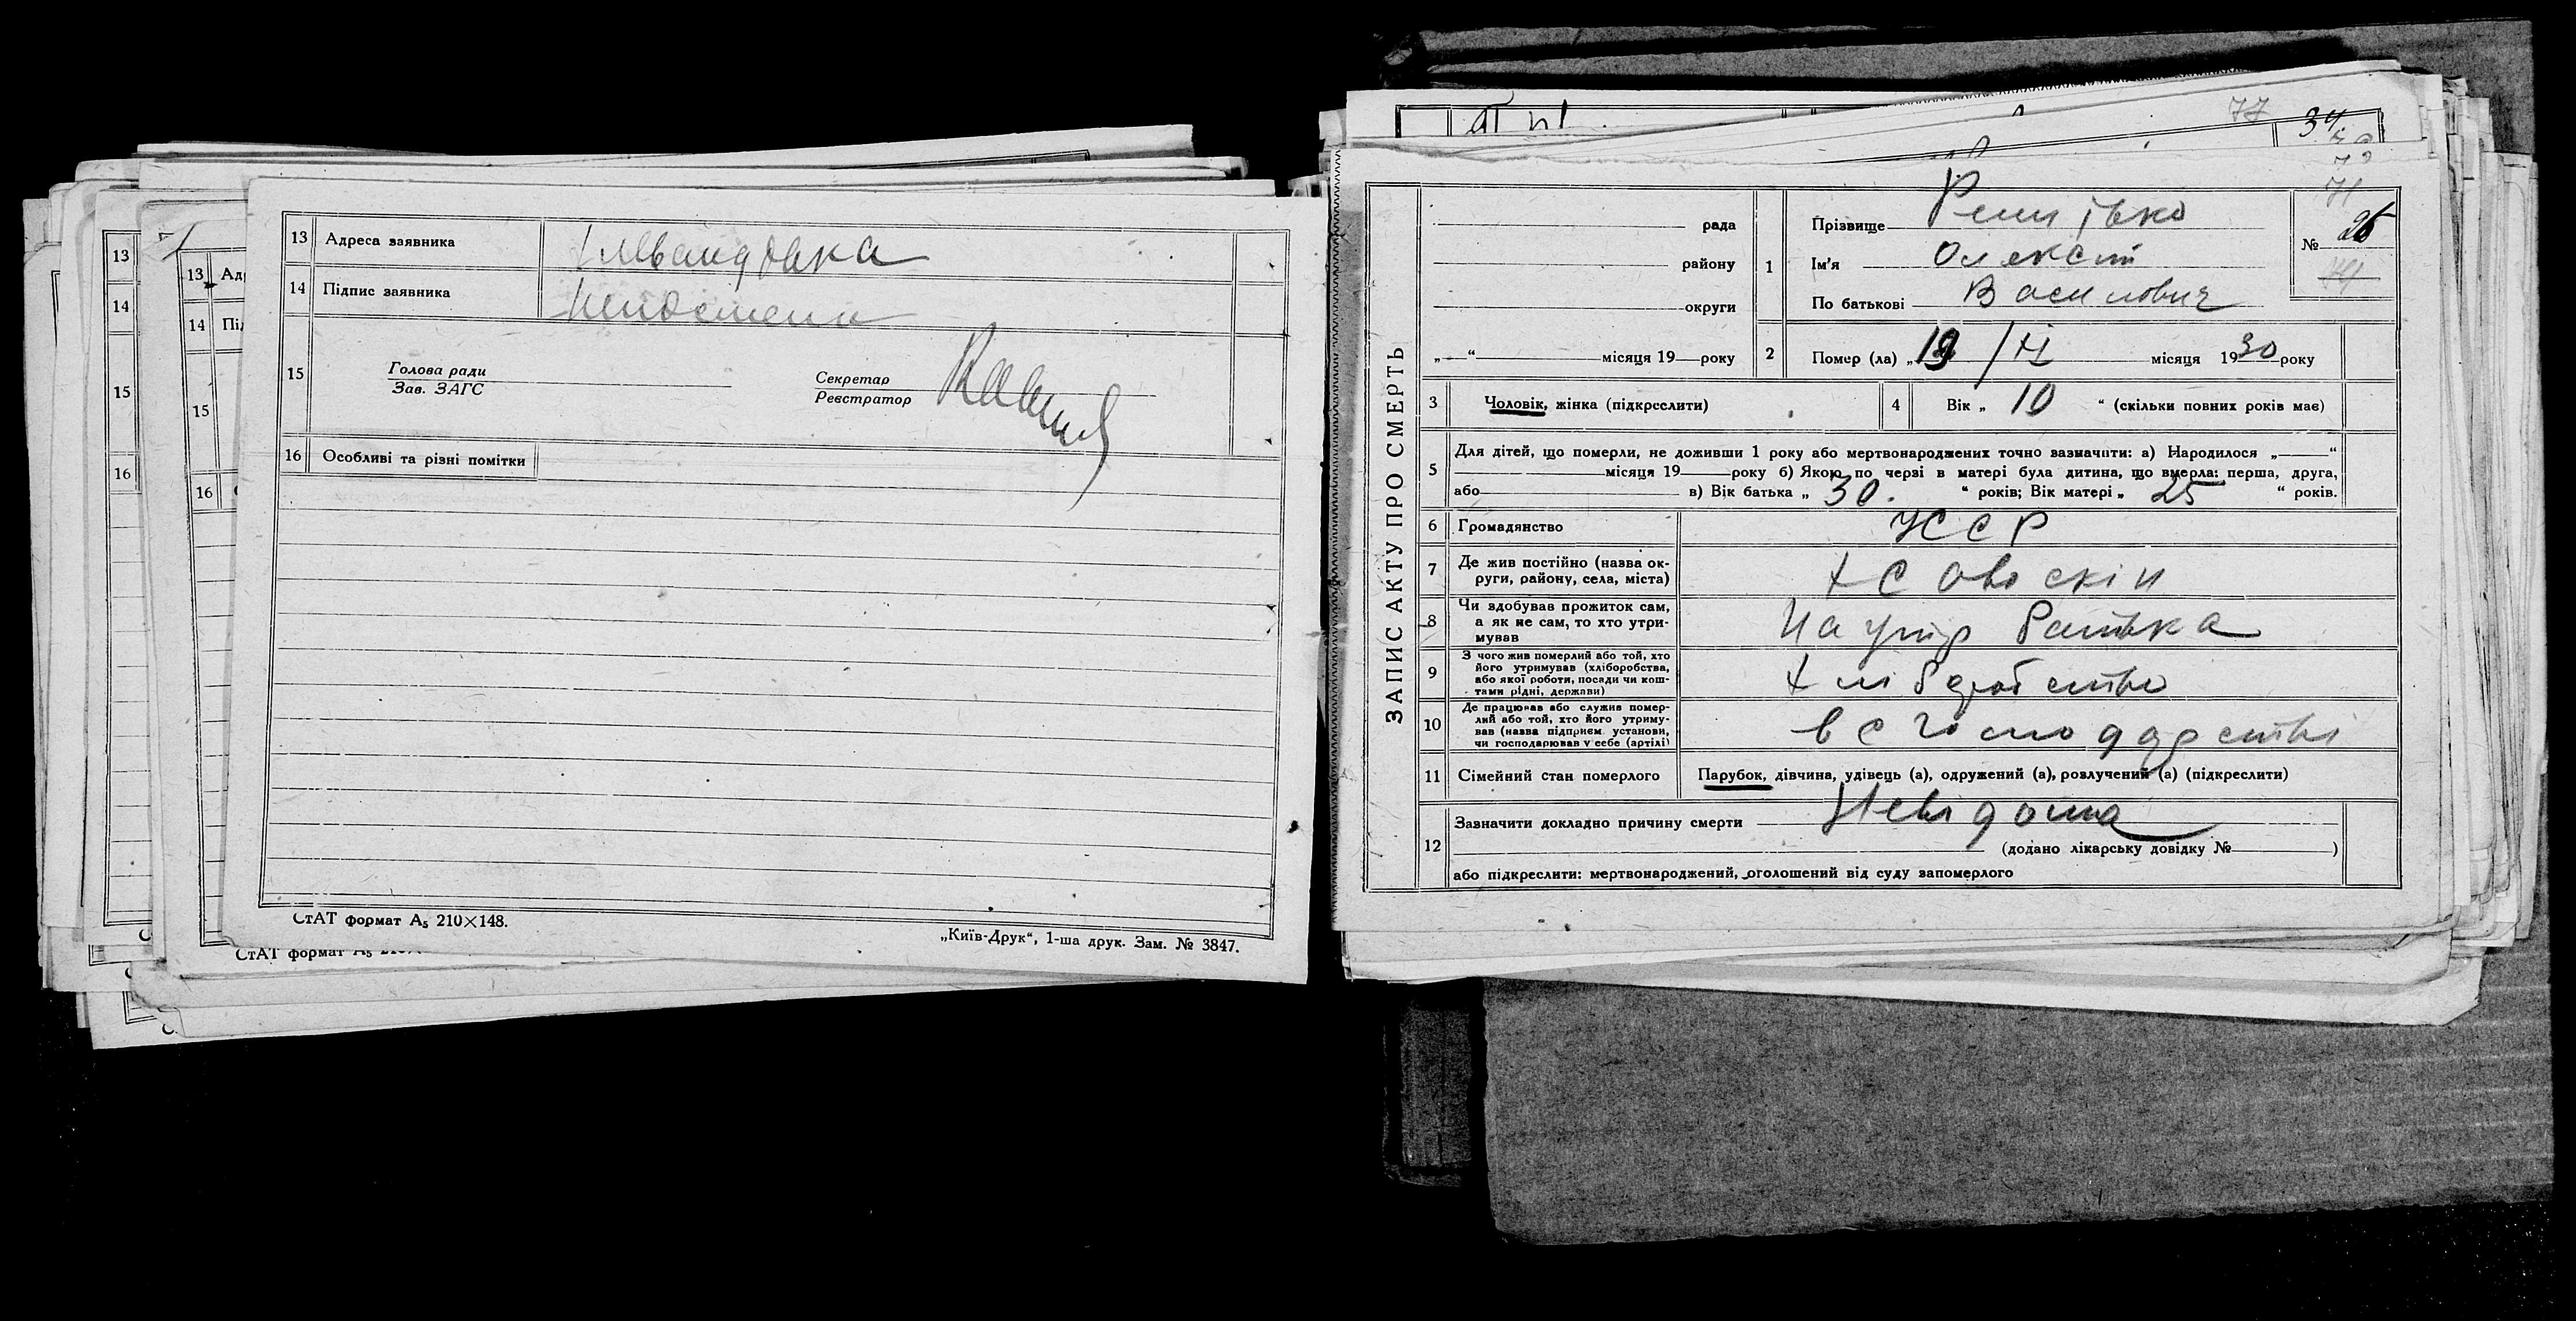 13 Адреса заявника
14 Підпис заявника
15 Голова ради
Зав. ЗАГС
Секретар
Реєстратор
16 Особливі та різні помітки
СтАТ формат А₅ 210×148.
„Київ-Друк“, 1-ша друк. Зам. № 3847.
13
14
15
16
13 Ад
14 Пі
15
16
СтАТ формат А₅
77
34
71
ЗАПИС АКТУ ПРО СМЕРТЬ
рада
району
округи
„ “ місяця 19 року
1 Прізвище
Ім'я Олексій
По батькові Василович
№ 26
2 Помер (ла) „19/XI місяця 1930 року
3 Чоловік, жінка (підкреслити)
4 Вік „ 10 “ (скільки повних років має)
5 Для дітей, що померли, не доживши 1 року або мертвонароджених точно зазначити: а) Народилося „ “
місяця 19 року б) Якою по черзі в матері була дитина, що вмерла: перша, друга,
або в) Вік батька „ 30. “ років; Вік матері „ 25 “ років.
6 Громадянство УССР
7 Де жив постійно (назва округи, району, села, міста)
8 Чи здобував прожиток сам,
а як не сам, то хто утри-
мував
На утр батька
9 З чого жив померлий або той, хто
його утримував (хліборобства,
або якої роботи, посади чи кош-
тами рідні, держави)
хліборобство
10 Де працював або служив помер-
лий або той, хто його утриму-
вав (назва підприєм. установи,
чи господарював у себе (артілі)
в с господарстві
11 Сімейний стан померлого Парубок, дівчина, удівець (а), одружений (а), розлучений (а) (підкреслити)
12 Зазначити докладно причину смерти Невідома
(додано лікарську довідку № )
або підкреслити: мертвонароджений, оголошений від суду запомерлого